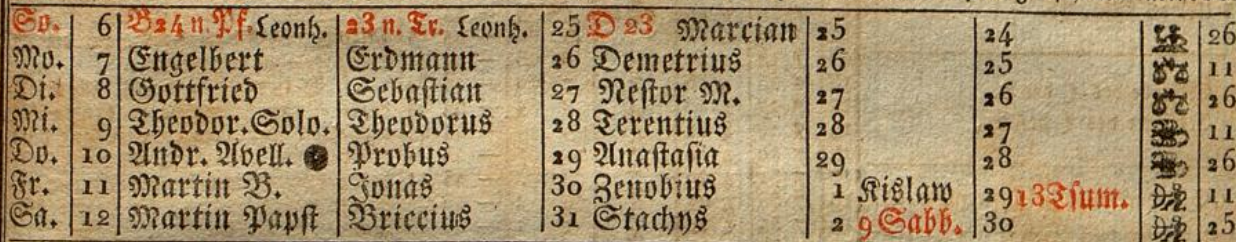 So. 6 B24 n. Pf. Leonh. 23 n. Tr. Leonh. 25 D 23 Marcian 25 24 26
Mo. 7 Engelbert Erdmann 26 Demetrius 26 25 11
Di. 8 Gottfried Sebastian 27 Nestor M. 27 26 26
Mi. 9 Theodor. Solo. Theodorus 28 Terentius 28 27 11
Do. 10 Andr. Avell. Probus 29 Anastasia 29 28 26
Fr. 11 Martin B. Jonas 30 Zenobius 1 Kislaw 29 13 Tsum. 11
Sa. 12 Martin Papst Briccius 31 Stachys 2 9 Sabb. 30 25